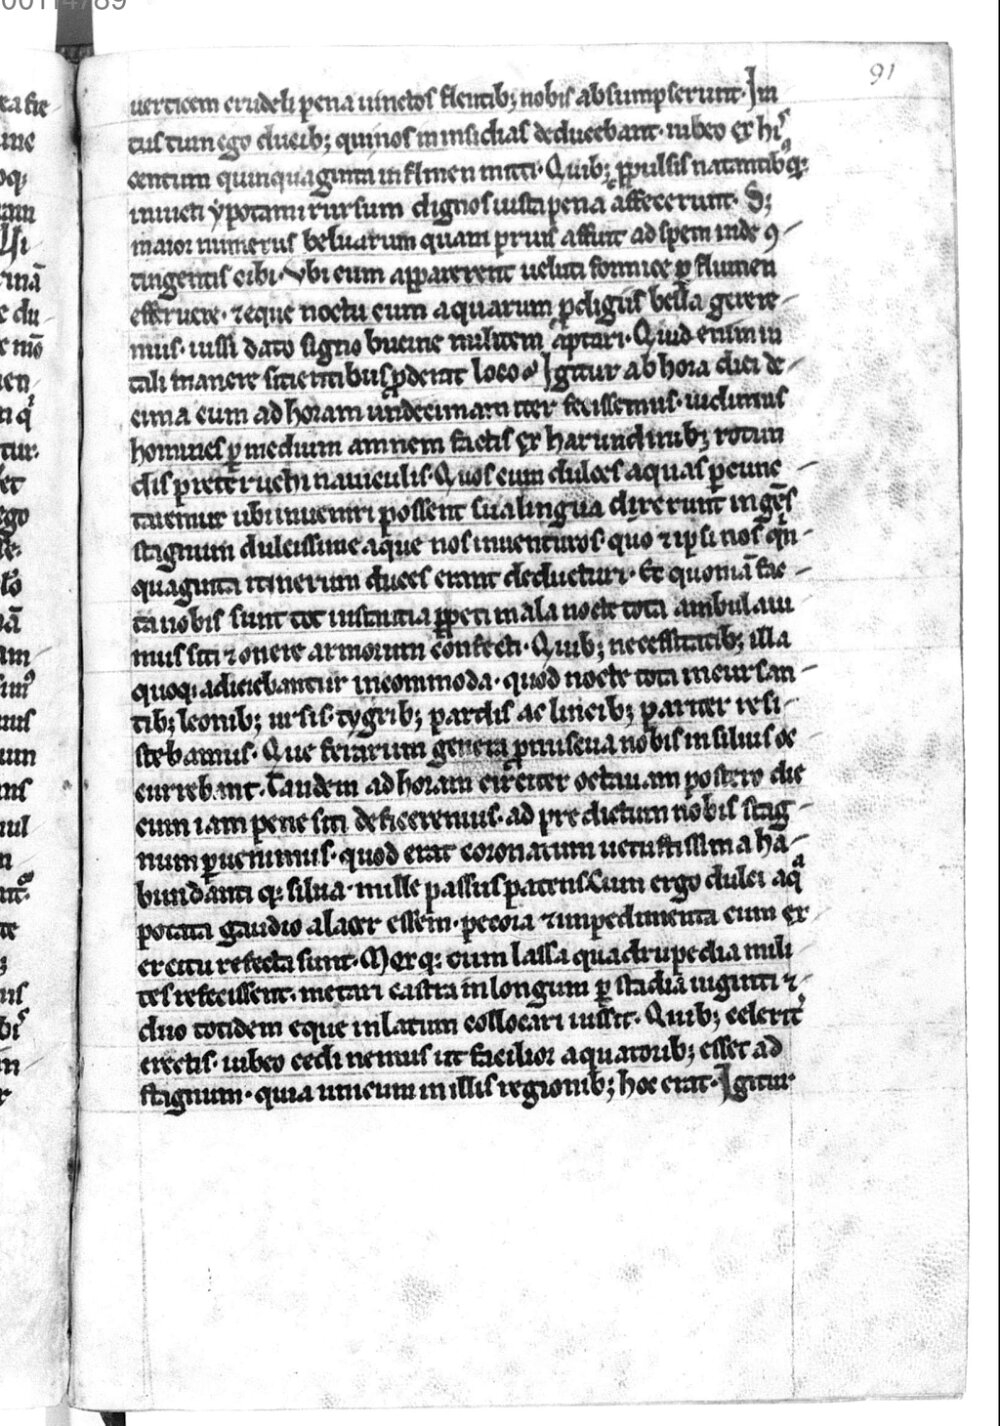 00114789
91
uerticem crudeli pena uinctos flentib; nobis absumpserunt. Jra
tus tum ego ducib; qui nos in insidias deducebant. iubeo ex hiˢ
centum quinquaginta in flmen mitti. Quib; ꝓpulsis natantibꝰq;
inuicti ypotami rursum dignos iusta pena affecerunt. S;
maior numerus beluarum quam prius affuit ad spem inde ꝯ-
tingentis cibi. Vbi cum apparerent ueluti formice ꝑ flumen
efferuere. ⁊ eque noctu cum aquarum ꝓdigiis bella gerere-
mus. iussi dato signo bucine militem aptari. Quid enim in
tali manere sitientibus ꝓderat loco? Jgitur ab hora diei de-
cima cum ad horam undecimam iter fecissemus. uidimus
homines ꝑ medium amnem factis ex harundinib; rotun
dis preteruehi nauiculis. Quos cum dulces aquas ꝑcunc-
taremur ubi inueniri possent sua lingua dixerunt ingēs
stagnum dulcissime aque nos inuenturos. quo ⁊ ipsi nos qͥn-
quaginta itinerum duces erant deducturi. Et quoniā fac-
ta nobis sunt tot ꝑpeti mala nocte tota ambulaui
mus siti ⁊ onere armorum confecti. Quib; necessitatib; illa
quoq; adiciebantur incommoda. quod nocte tota incursan-
tib; leonib; ursis. tygrib; pardis ac lincib; pariter resi-
stebamus. Que ferarum genera ꝓmiscua nobis in siluis oc-
currebant. Tandem ad horam circiter octauam postero die
cum iam pene siti deficeremus. ad predictum nobis stag-
num ꝑuenimus. quod erat coronatum uetustissima ha-
bundanti q; silua. mille passus patens Cum ergo dulci aqͣ
potata gaudio alacer essem. pecora ⁊ impedimenta cum ex
ercitu refecta sunt. Mox q; cum lassa quadrupedia mili-
tes refecissent. metari castra in longum ꝑ stadia uiginti ⁊-
duo totidem eque in latum collocari iussit. Quib; celerit͛
erectis. iubeo cedi nemus ut facilior aquatorib; esset ad
stagnum. quia unicum in illis regionib; hoc erat. Jgitur